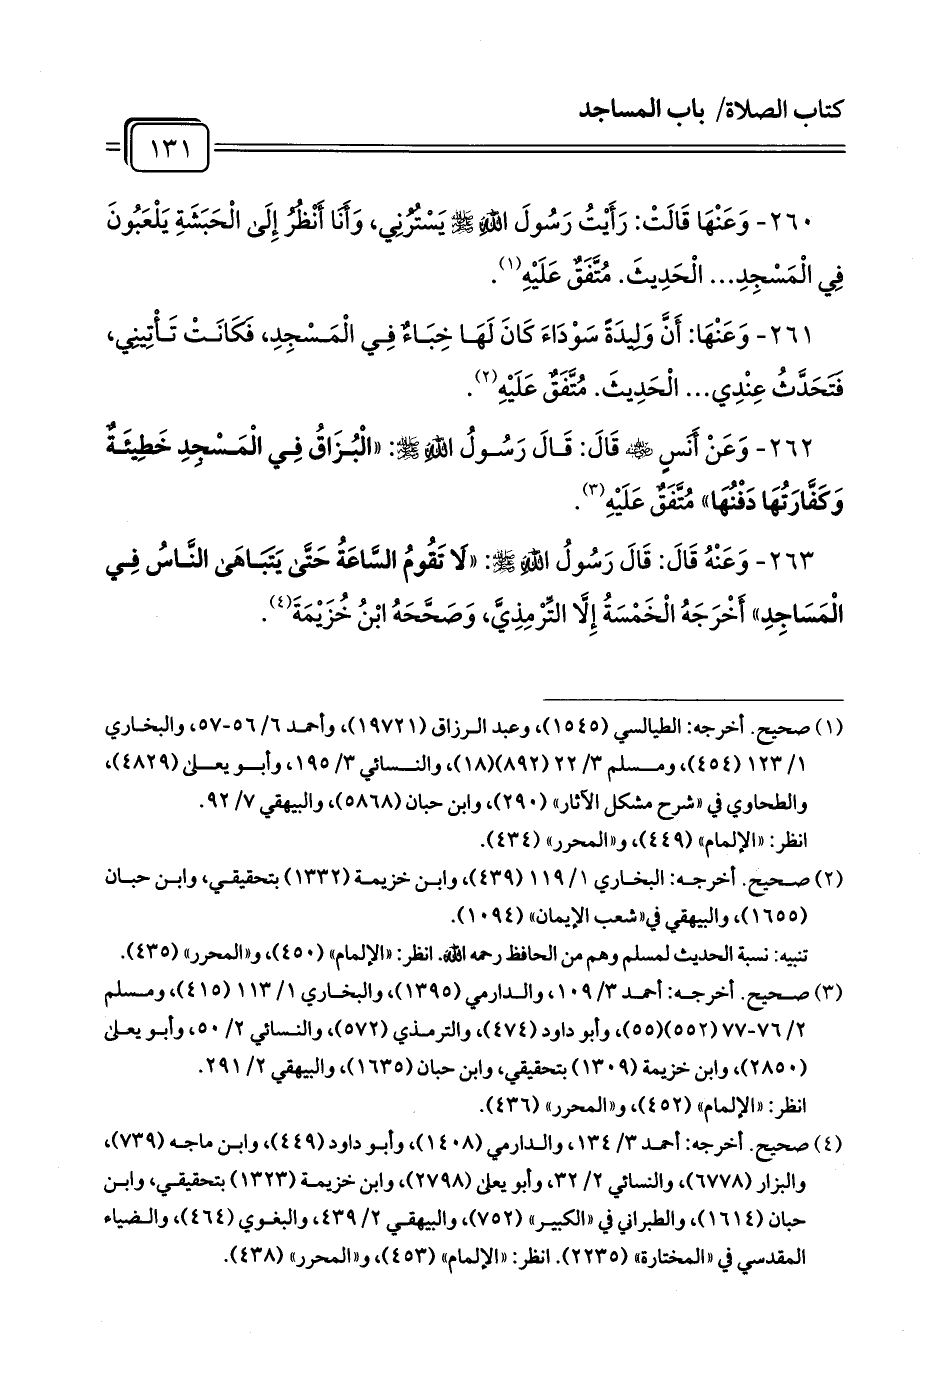 كتاب الصلاة/ باب المساجد
١٣١
٢٦٠- وَعَنْهَا قَالَتْ: رَأَيْتُ رَسُولَ اللهِ ﷺ يَسْتُرُنِي، وَأَنَا أَنْظُرُ إِلَى الْحَبَشَةِ يَلْعَبُونَ
فِي الْمَسْجِدِ... الْحَدِيثَ. مُتَّفَقٌ عَلَيْهِ(١).
٢٦١- وَعَنْهَا: أَنَّ وَلِيدَةً سَوْدَاءَ كَانَ لَهَا خِبَاءٌ فِي الْمَسْجِدِ، فَكَانَتْ تَأْتِينِي،
فَتَحَدَّثُ عِنْدِي... الْحَدِيثَ. مُتَّفَقٌ عَلَيْهِ(٢).
٢٦٢- وَعَنْ أَنَسٍ ﷺ قَالَ: قَالَ رَسُولُ اللهِ ﷺ: «الْبُزَاقُ فِي الْمَسْجِدِ خَطِيئَةٌ
وَكَفَّارَتُهَا دَفْنُهَا» مُتَّفَقٌ عَلَيْهِ(٣).
٢٦٣- وَعَنْهُ قَالَ: قَالَ رَسُولُ اللهِ ﷺ: «لَا تَقُومُ السَّاعَةُ حَتَّى يَتَبَاهَى النَّاسُ فِي
الْمَسَاجِدِ» أَخْرَجَهُ الْخَمْسَةُ إِلَّا التِّرْمِذِيَّ، وَصَحَّحَهُ ابْنُ خُزَيْمَةَ(٤).
(١) صحيح. أخرجه: الطيالسي (١٥٤٥)، وعبد الرزاق (١٩٧٢١)، وأحمد ٦/ ٥٦-٥٧، والبخاري
١/ ١٢٣ (٤٥٤)، ومسلم ٣/ ٢٢ (٨٩٢)(١٨)، والنسائي ٣/ ١٩٥، وأبو يعلى (٤٨٢٩)،
والطحاوي في «شرح مشكل الآثار» (٢٩٠)، وابن حبان (٥٨٦٨)، والبيهقي ٧/ ٩٢.
انظر: «الإلمام» (٤٤٩)، و«المحرر» (٤٣٤).
(٢) صحيح. أخرجه: البخاري ١/ ١١٩ (٤٣٩)، وابن خزيمة (١٣٣٢) بتحقيقي، وابن حبان
(١٦٥٥)، والبيهقي في«شعب الإيمان» (١٠٩٤).
تنبيه: نسبة الحديث لمسلم وهم من الحافظ رحمه الله. انظر: «الإلمام» (٤٥٠)، و«المحرر» (٤٣٥).
(٣) صحيح. أخرجه: أحمد ٣/ ١٠٩، والدارمي (١٣٩٥)، والبخاري ١/ ١١٣ (٤١٥)، ومسلم
٢/ ٧٦-٧٧ (٥٥٢)(٥٥)، وأبو داود (٤٧٤)، والترمذي (٥٧٢)، والنسائي ٢/ ٥٠، وأبو يعلى
(٢٨٥٠)، وابن خزيمة (١٣٠٩) بتحقيقي، وابن حبان (١٦٣٥)، والبيهقي ٢/ ٢٩١.
انظر: «الإلمام» (٤٥٢)، و«المحرر» (٤٣٦).
(٤) صحيح. أخرجه: أحمد ٣/ ١٣٤، والدارمي (١٤٠٨)، وأبو داود (٤٤٩)، وابن ماجه (٧٣٩)،
والبزار (٦٧٧٨)، والنسائي ٢/ ٣٢، وأبو يعلى (٢٧٩٨)، وابن خزيمة (١٣٢٣) بتحقيقي، وابن
حبان (١٦١٤)، والطبراني في «الكبير» (٧٥٢)، والبيهقي ٢/ ٤٣٩، والبغوي (٤٦٤)، والضياء
المقدسي في «المختارة» (٢٢٣٥). انظر: «الإلمام» (٤٥٣)، و«المحرر» (٤٣٨).